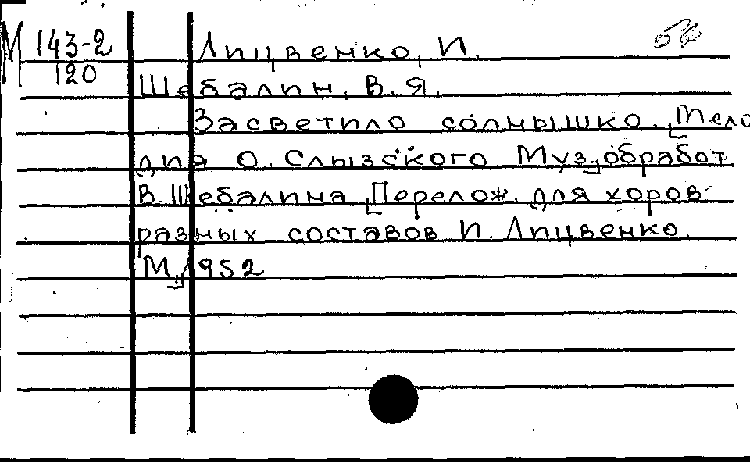 М 143-2 Лицвенко, И.
120
Шебалин, В.Я.
Засветило солнышко. Мело
дия О. Слызского Муз. обработ
В. Шебалина. Перелож. для хоров
разных составов И. Лицвенко.
М., 1952